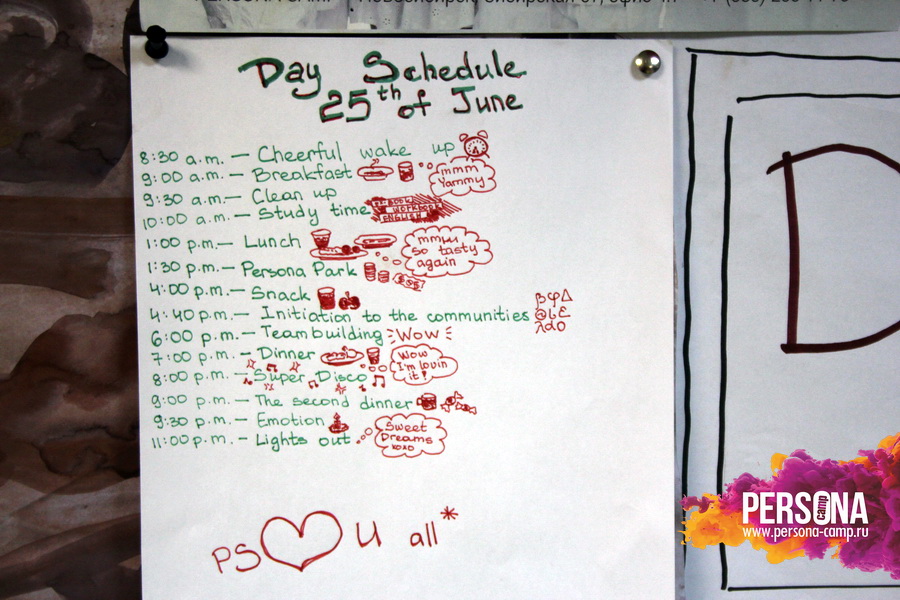 Day Schedule
25th of June
8:30 a.m. — Cheerful wake up
9:00 a.m. — Breakfast
mmm
Yammy
9:30 a.m. — Clean up
10:00 a.m. — Study time
BOOK
WORKBOOK
ENGLISH
1:00 p.m. — Lunch
mmm
so tasty
again
1:30 p.m. — Persona Park
4:00 p.m. — Snack
4:40 p.m. — Initiation to the communities
6:00 p.m. — Teambuilding Wow
7:00 p.m. — Dinner
Wow
I'm lovin
it!
8:00 p.m. — Super Disco
9:00 p.m. — The second dinner
9:30 p.m. — Emotion
11:00 p.m. — Lights out
Sweet
Dreams
xoxo
PS U all*
D
PERSONA
camp
www.persona-camp.ru